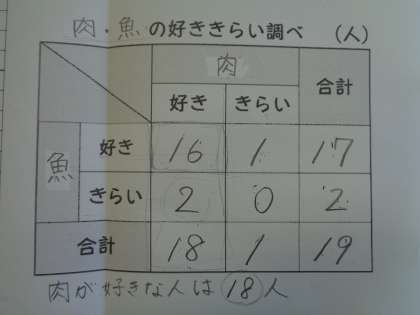 肉・魚の好ききらい調べ (人)
肉 合計
好き きらい
魚 好き 16 1 17
きらい 2 0 2
合計 18 1 19
肉が好きな人は18人